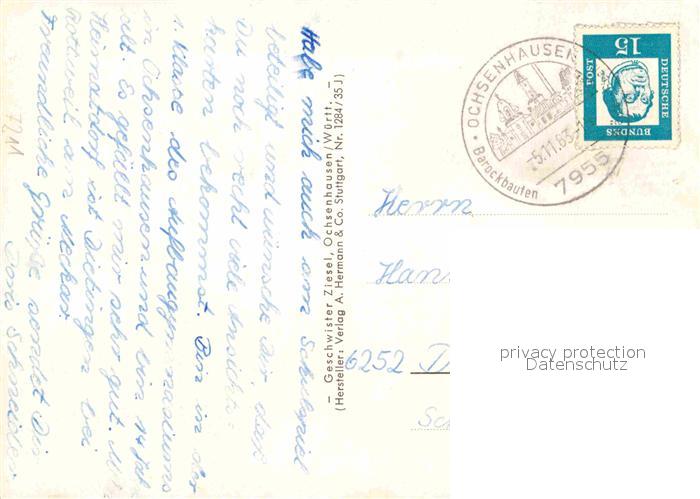 Habe mich auch am Schulspiel
beteiligt und wünsche Dir daß
Du noch recht viele Ansichts-
karten bekommst. Bin in der
1. Klasse des Aufbaugymnasiums
in Ochsenhausen und bin 14 Jah
alt. Es gefällt mir sehr gut. M
Heimatdorf ist Dietingen bei
Rottweil am Neckar.
Freundliche Grüße sendet Dir
Doris Schneider
7211
– Geschwister Ziesel, Ochsenhausen/Württ. –
(Hersteller: Verlag A. Hermann & Co. Stuttgart, Nr. 1284/35 J)
OCHSENHAUSEN
-5.11.63
Barockbauten
7955
15
DEUTSCHE
BUNDES
POST
Herrn
Han
6252 D
Sc
privacy protection
Datenschutz